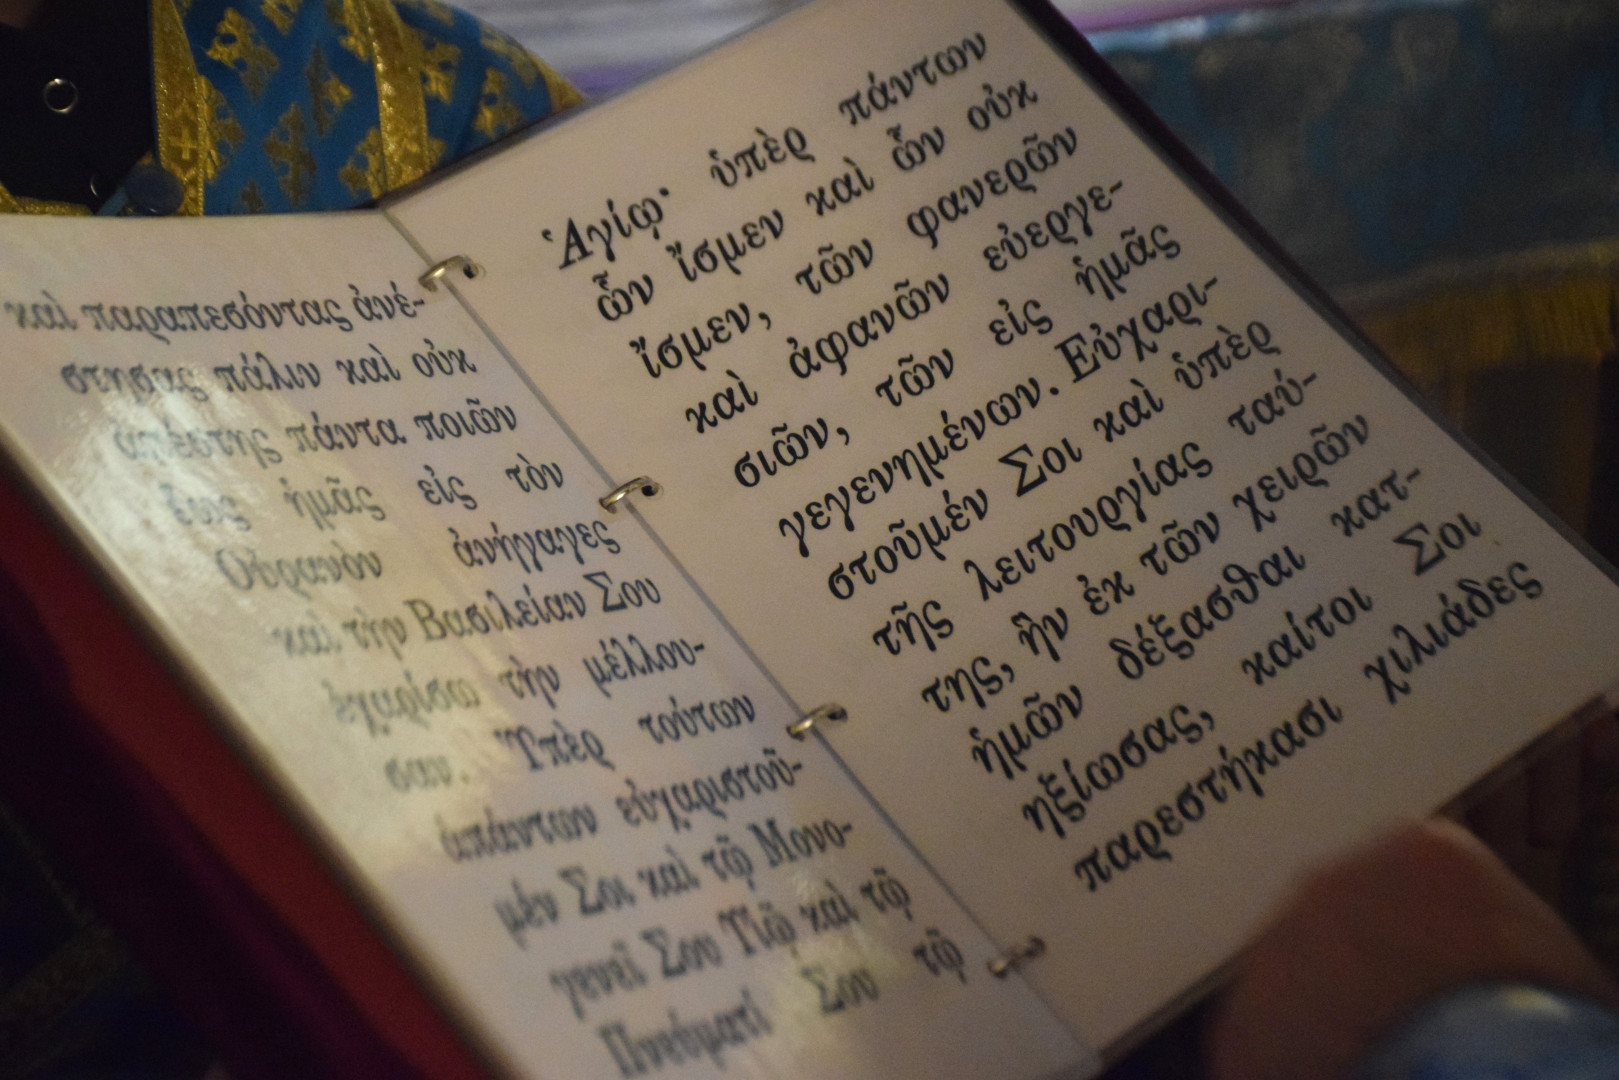 καὶ παραπεσόντας ἀνέ-
στησας πάλιν καὶ οὐκ
ἀπέστης πάντα ποιῶν
ἕως ἡμᾶς εἰς τὸν
Οὐρανὸν ἀνήγαγες
καὶ τὴν Βασιλείαν Σου
ἐχαρίσω τὴν μέλλου-
σαν. Ὑπὲρ τούτων
ἁπάντων εὐχαριστοῦ-
μέν Σοι καὶ τῷ Μονο-
γενεῖ Σου Υἱῷ καὶ τῷ
Πνεύματί Σου τῷ
Ἁγίῳ· ὑπὲρ πάντων
ὧν ἴσμεν καὶ ὧν οὐκ
ἴσμεν, τῶν φανερῶν
καὶ ἀφανῶν εὐεργε-
σιῶν, τῶν εἰς ἡμᾶς
γεγενημένων. Εὐχαρι-
στοῦμέν Σοι καὶ ὑπὲρ
τῆς λειτουργίας ταύ-
της, ἣν ἐκ τῶν χειρῶν
ἡμῶν δέξασθαι κατ-
ηξίωσας, καίτοι Σοι
παρεστήκασι χιλιάδες